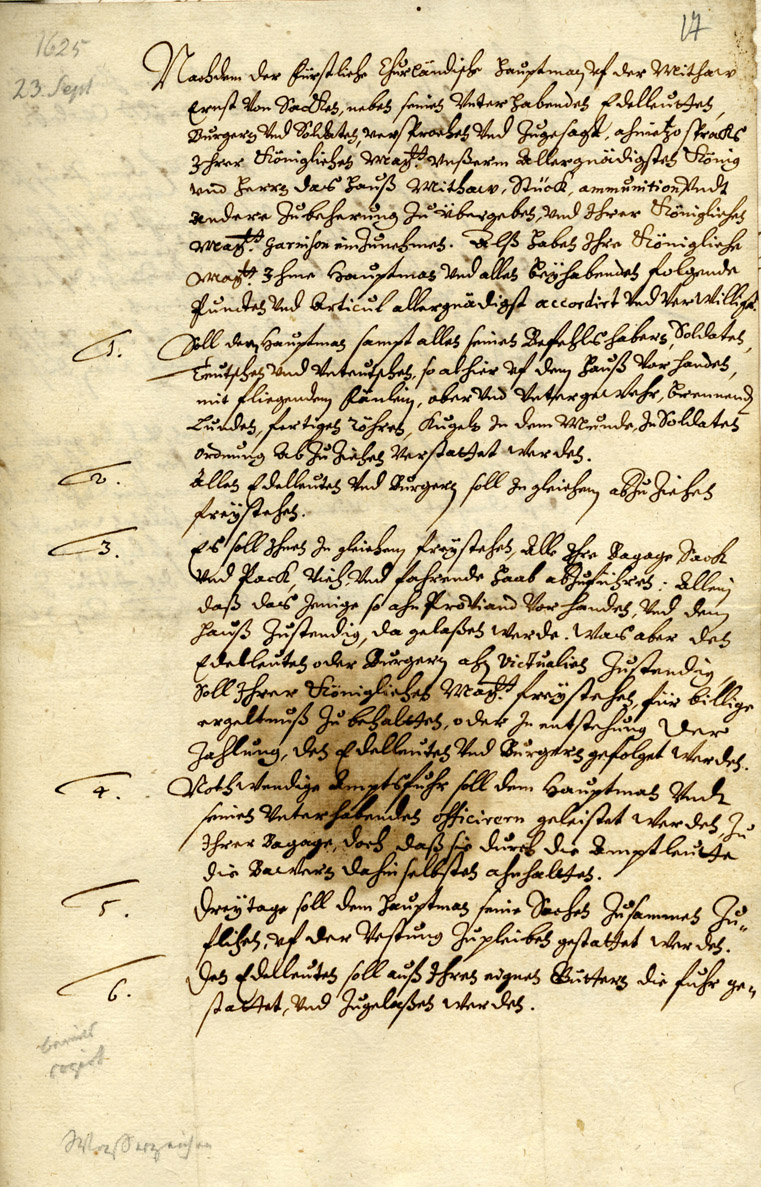 17
1625
23. Sept
Nachdem der Fürstliche Churländische Hauptman vf der Mithaw
Ernst von Sacken, neben seinen Unterhabenden Edelleutten,
Burgern Vnd Soldaten, versprochen Vnd Zugesagt,
Ihrer Königlichen Maytt. Vnßerm Allergnädigsten König
vnd Herrn das Hauß Mithaw, Stück, ammunition Vndt
andere Zubeherung Zu Vbergeben, Vnd Ihrer Königlichen
Maytt. Garnison einZunehmen. Alß haben Ihre Königliche
Maytt. Ihme Hauptman Vnd allen beyhabenden folgende
Puncten Vnd Articul allergnädigst accordirt Vnd Verwilligt.
1. Soll dem Hauptman sampt allen seinen Befehlshabern, Soldaten,
Teutschen Vnd Vnteutschen, so alhier vf dem Hauß Vorhanden,
mit fliegendem Fänlein, ober Vnd Vntergewehr, brennenden
Lunden, fertigen Röhren, Kugeln In dem Munde, In Soldaten
ordnung abZuZiehen Verstattet werden.
2. Allen Edelleuten Vnd Burgern soll In gleichem abZuZiehen
freystehen.
3. Es soll Ihnen In gleichem freystehen, Alle Ihre Bagage Sack
Vnd Pack, Vieh, Vnd fahrende Haab abZuführen: Allein
daß das Jenige so ahn Proviand Vorhanden, Vnd dem
Hauß Zustendig, da gelaßen werde. Was aber den
Edelleuten oder Burgern ahn Victualien Zustendig,
Soll Ihrer Königlichen Maytt. freystehen, für billige
ergeltnuß Zubehalten, oder In entstehung der
Zahlung, den Edelleuten Vnd Burgern gefolget werden.
4. Nothwendige Amptsfuhr soll dem Hauptman Vndt
seinen Vnterhabenden officirern geleistet werden, Zu
Ihrer Bagage, doch daß sie durch die Amptleutte
die Bawern dahin selbsten anhalten.
5. Drey tage soll dem Hauptman seine Sachen Zusammen Zu=
flihen, vf der Vestung Zupleiben gestattet werden.
6. Den Edelleuten soll auß Ihren eignen Güttern die fuhr ge=
stattet, Vnd Zugelaßen werden.
Wasserzeichen